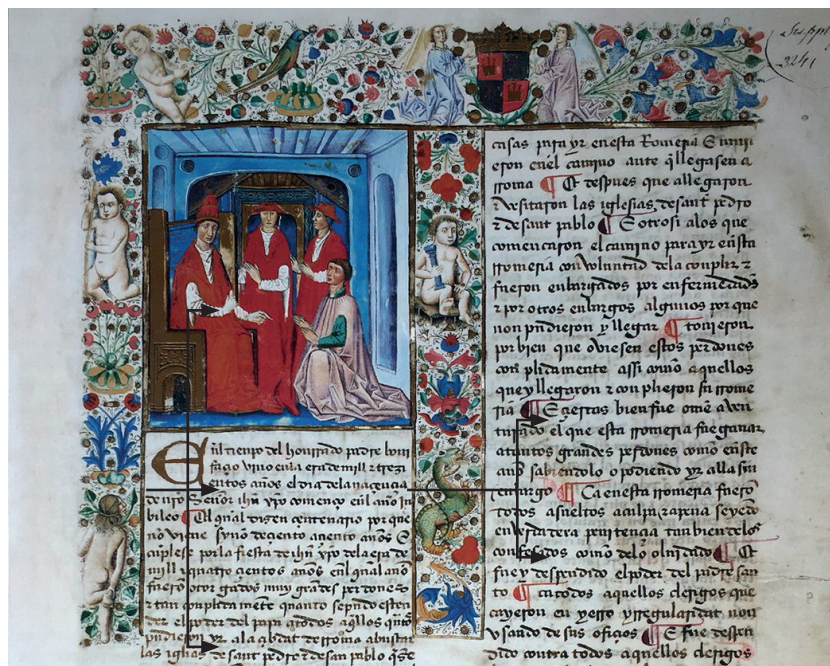 En tienpo del honrrado padre boni
façio vino en la era de mill z trezi
entos años el dia de la naçençia
de nr̃o Señor ihũ xp̃o començo enl año iu
bileo ¶ El qual disen centenario por que
no viene synõ de çento a çento años E
cũplese por la fiesta de ihũ xp̃o de la era de
mill z quatro çentos años enl qual año
fuerõ otorgados muy grandes perdones
z tan conplida mẽte quanto se pudo esten
der el poder del papa a todos aq̃llos
pudieron yr a la çibdat de rroma a buscar
las igłias de sant pedro z de san pablo q̃ se
casas para yr en esta Romeria E muri
eron enel camino ante q̃ llegasen a
rroma ¶ E despues que allegaron
z vesitaron las iglesias de sant pedro
z de sant pablo ¶ E otrosi alos que
començaron el camino para yr en esta
rromeria con voluntad de la conplir z
fueron enbargados por enfermedades
z por otros enbargos algunos por que
non pudieron y llegar ¶ touieron
por bien que oviesen estos perdones
conplida mente assi como aquellos
que y llegaron z conplieron su rrome
ria ¶ E çertas bien fue ome aven
turado el que esta rromeria fue ganar
a tantos grandes perdones como en este
año sabiendolo o podiendo yr alla sin
enbargo ¶ Ca en esta rromeria fuerõ
todos asueltos a culpa z a pena seyẽdo
en verdadera penitençia tan bien delos
confesados como delo oluidado ¶ E
fue y despendido el poder del padre san
to ¶ Contodos aquellos clerigos que
cayeron en yerro yrregularidat non
vsando de sus ofiçios ¶ E fue despen
dido contra todos aquellos clerigos